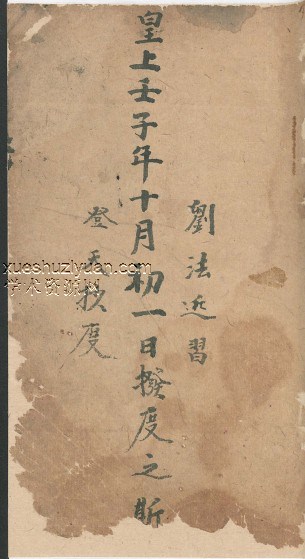 劉法近習
皇上壬子年十月初一日撥度之斯
登天撥度
xueshuziyuan.com
学术资源网